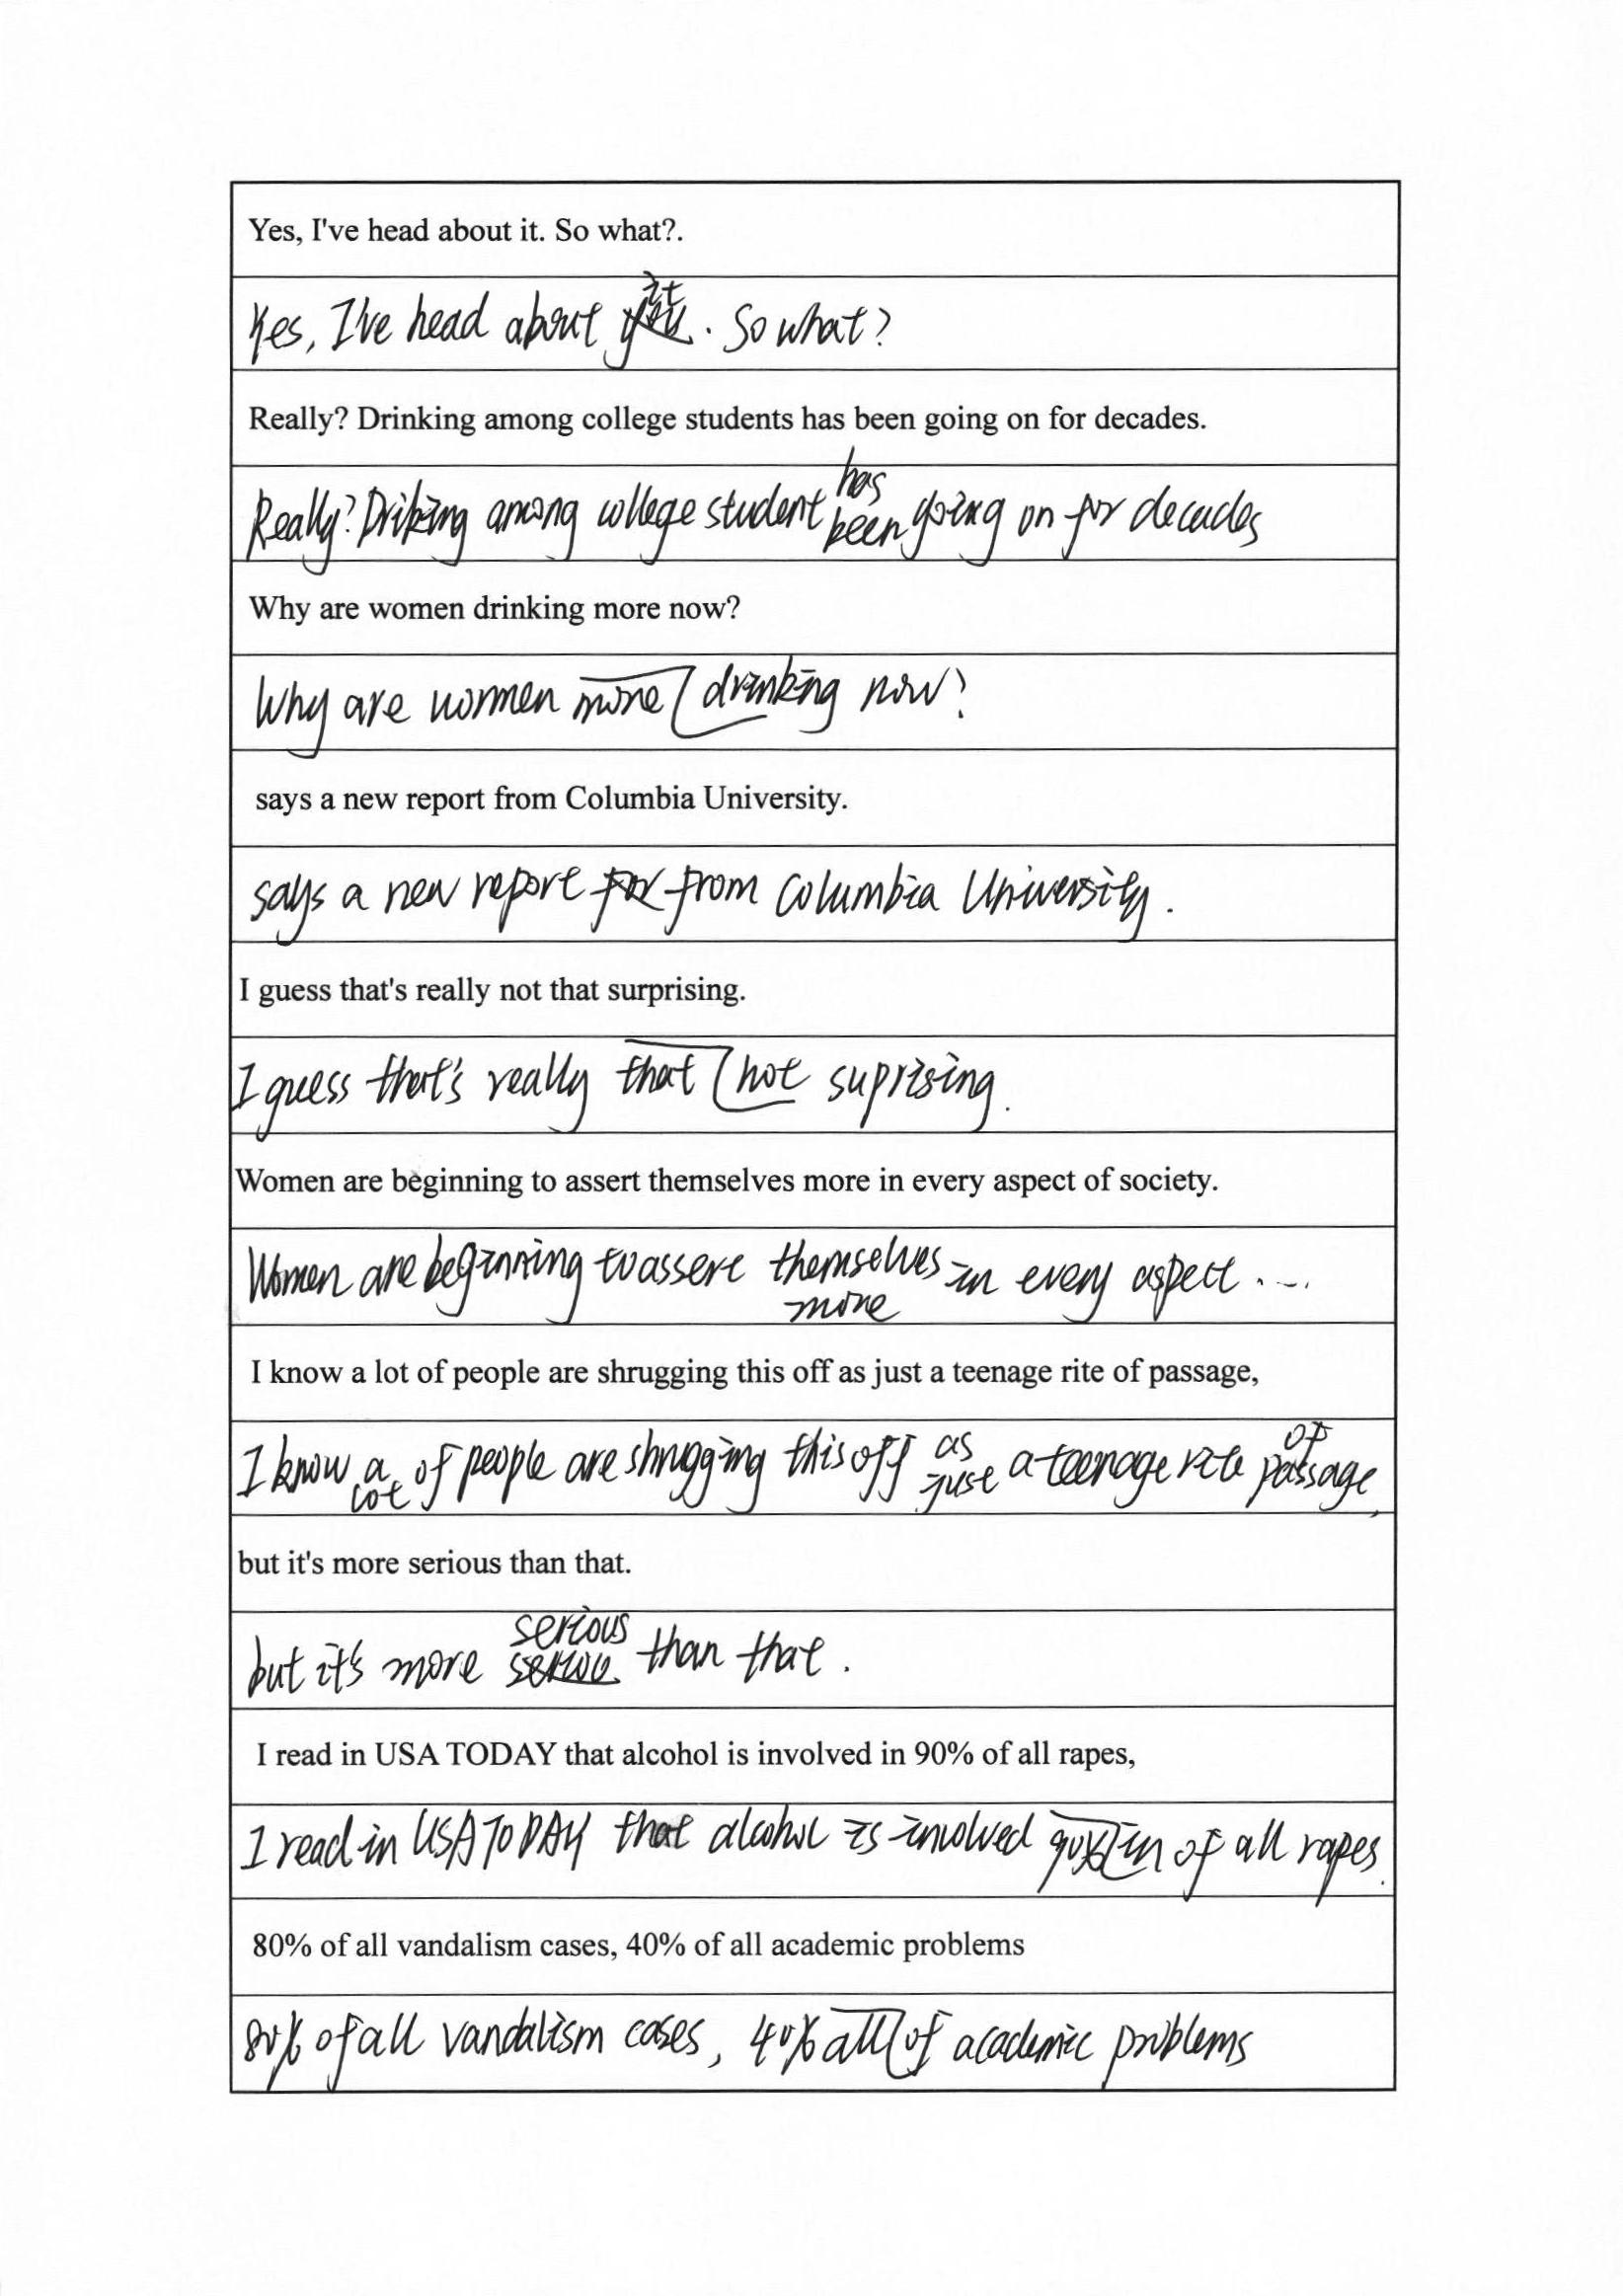 Yes, I've head about it. So what?.
Yes, I've head about it. So what?
Really? Drinking among college students has been going on for decades.
Really? Driking among college student has been going on for decades
Why are women drinking more now?
Why are women drinking more now?
says a new report from Columbia University.
says a new report from Columbia University.
I guess that's really not that surprising.
I guess that's really not that suprising.
Women are beginning to assert themselves more in every aspect of society.
Women are beginning to assert themselves more in every aspect ....
I know a lot of people are shrugging this off as just a teenage rite of passage,
I know a lot of people are shrugging this off as just a teenage rite of passage,
but it's more serious than that.
but it's more serious than that.
I read in USA TODAY that alcohol is involved in 90% of all rapes,
I read in USA TODAY that alcohol is involved in 90% of all rapes.
80% of all vandalism cases, 40% of all academic problems
80% of all vandalism cases, 40% of all academic problems